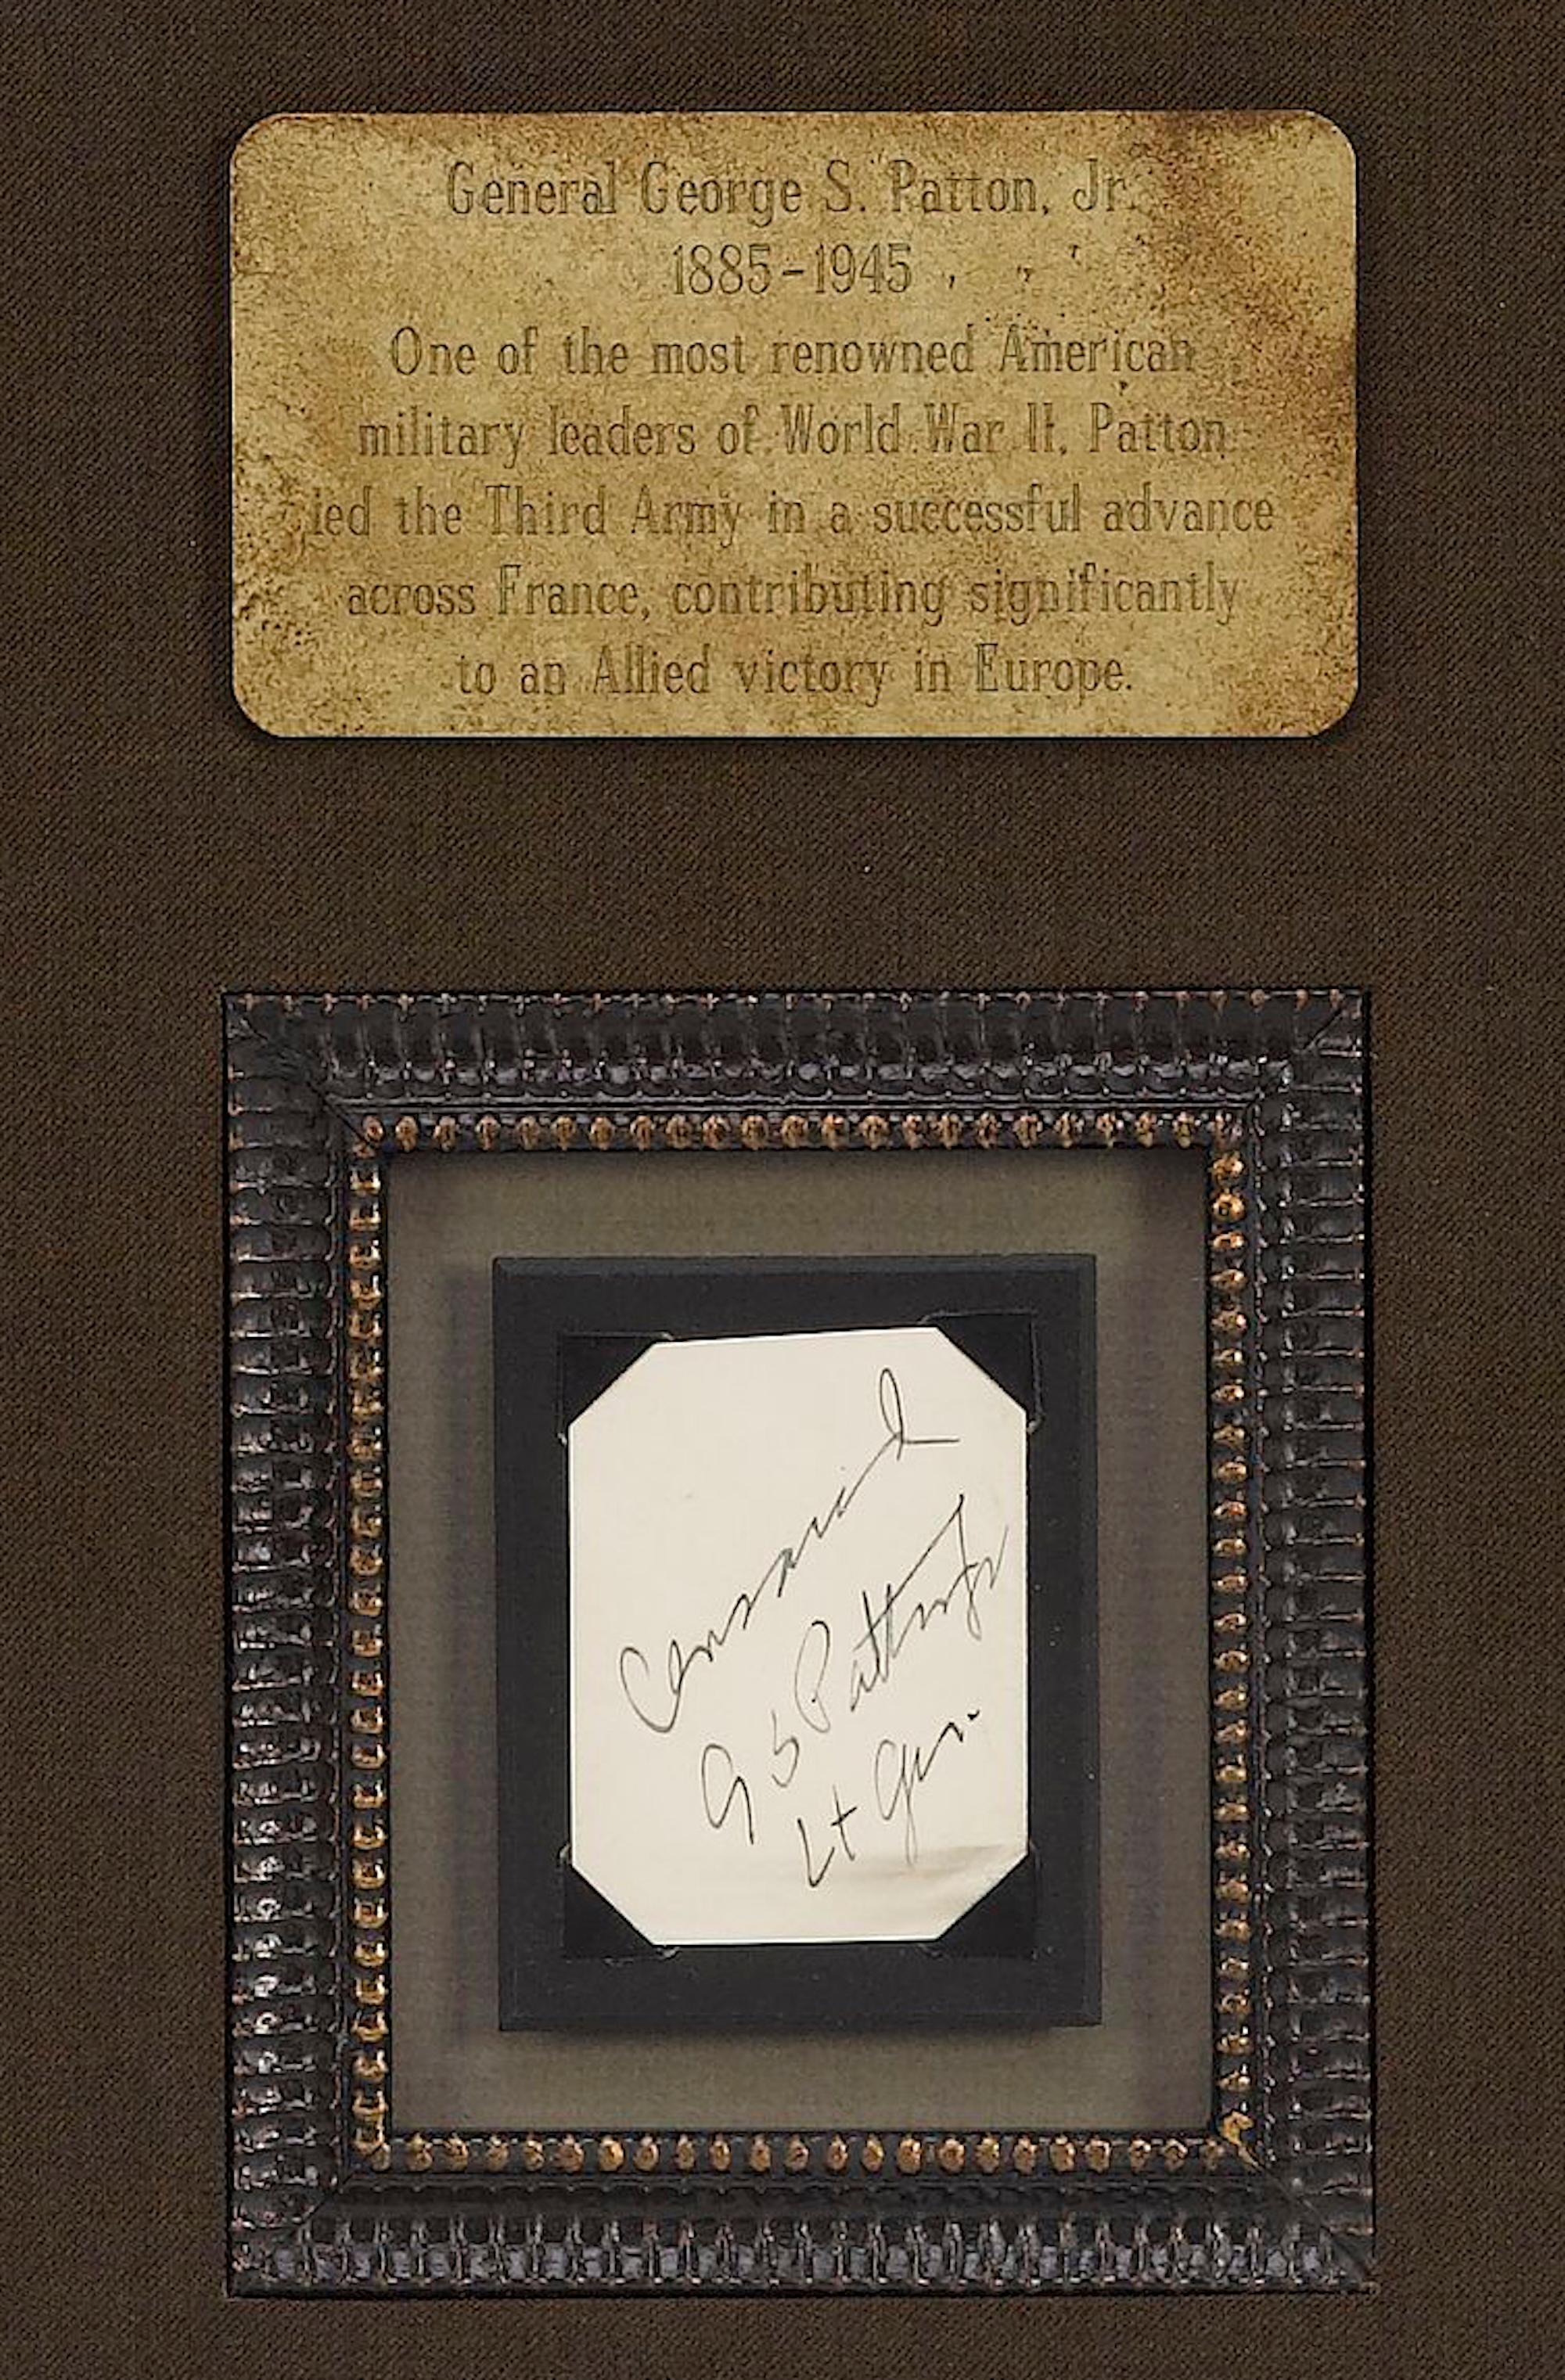 General George S. Patton, Jr.
1885-1945
One of the most renowned American
military leaders of World War II, Patton
led the Third Army in a successful advance
across France, contributing significantly
to an Allied victory in Europe.
Censored
G S Patton Jr
Lt Gen.